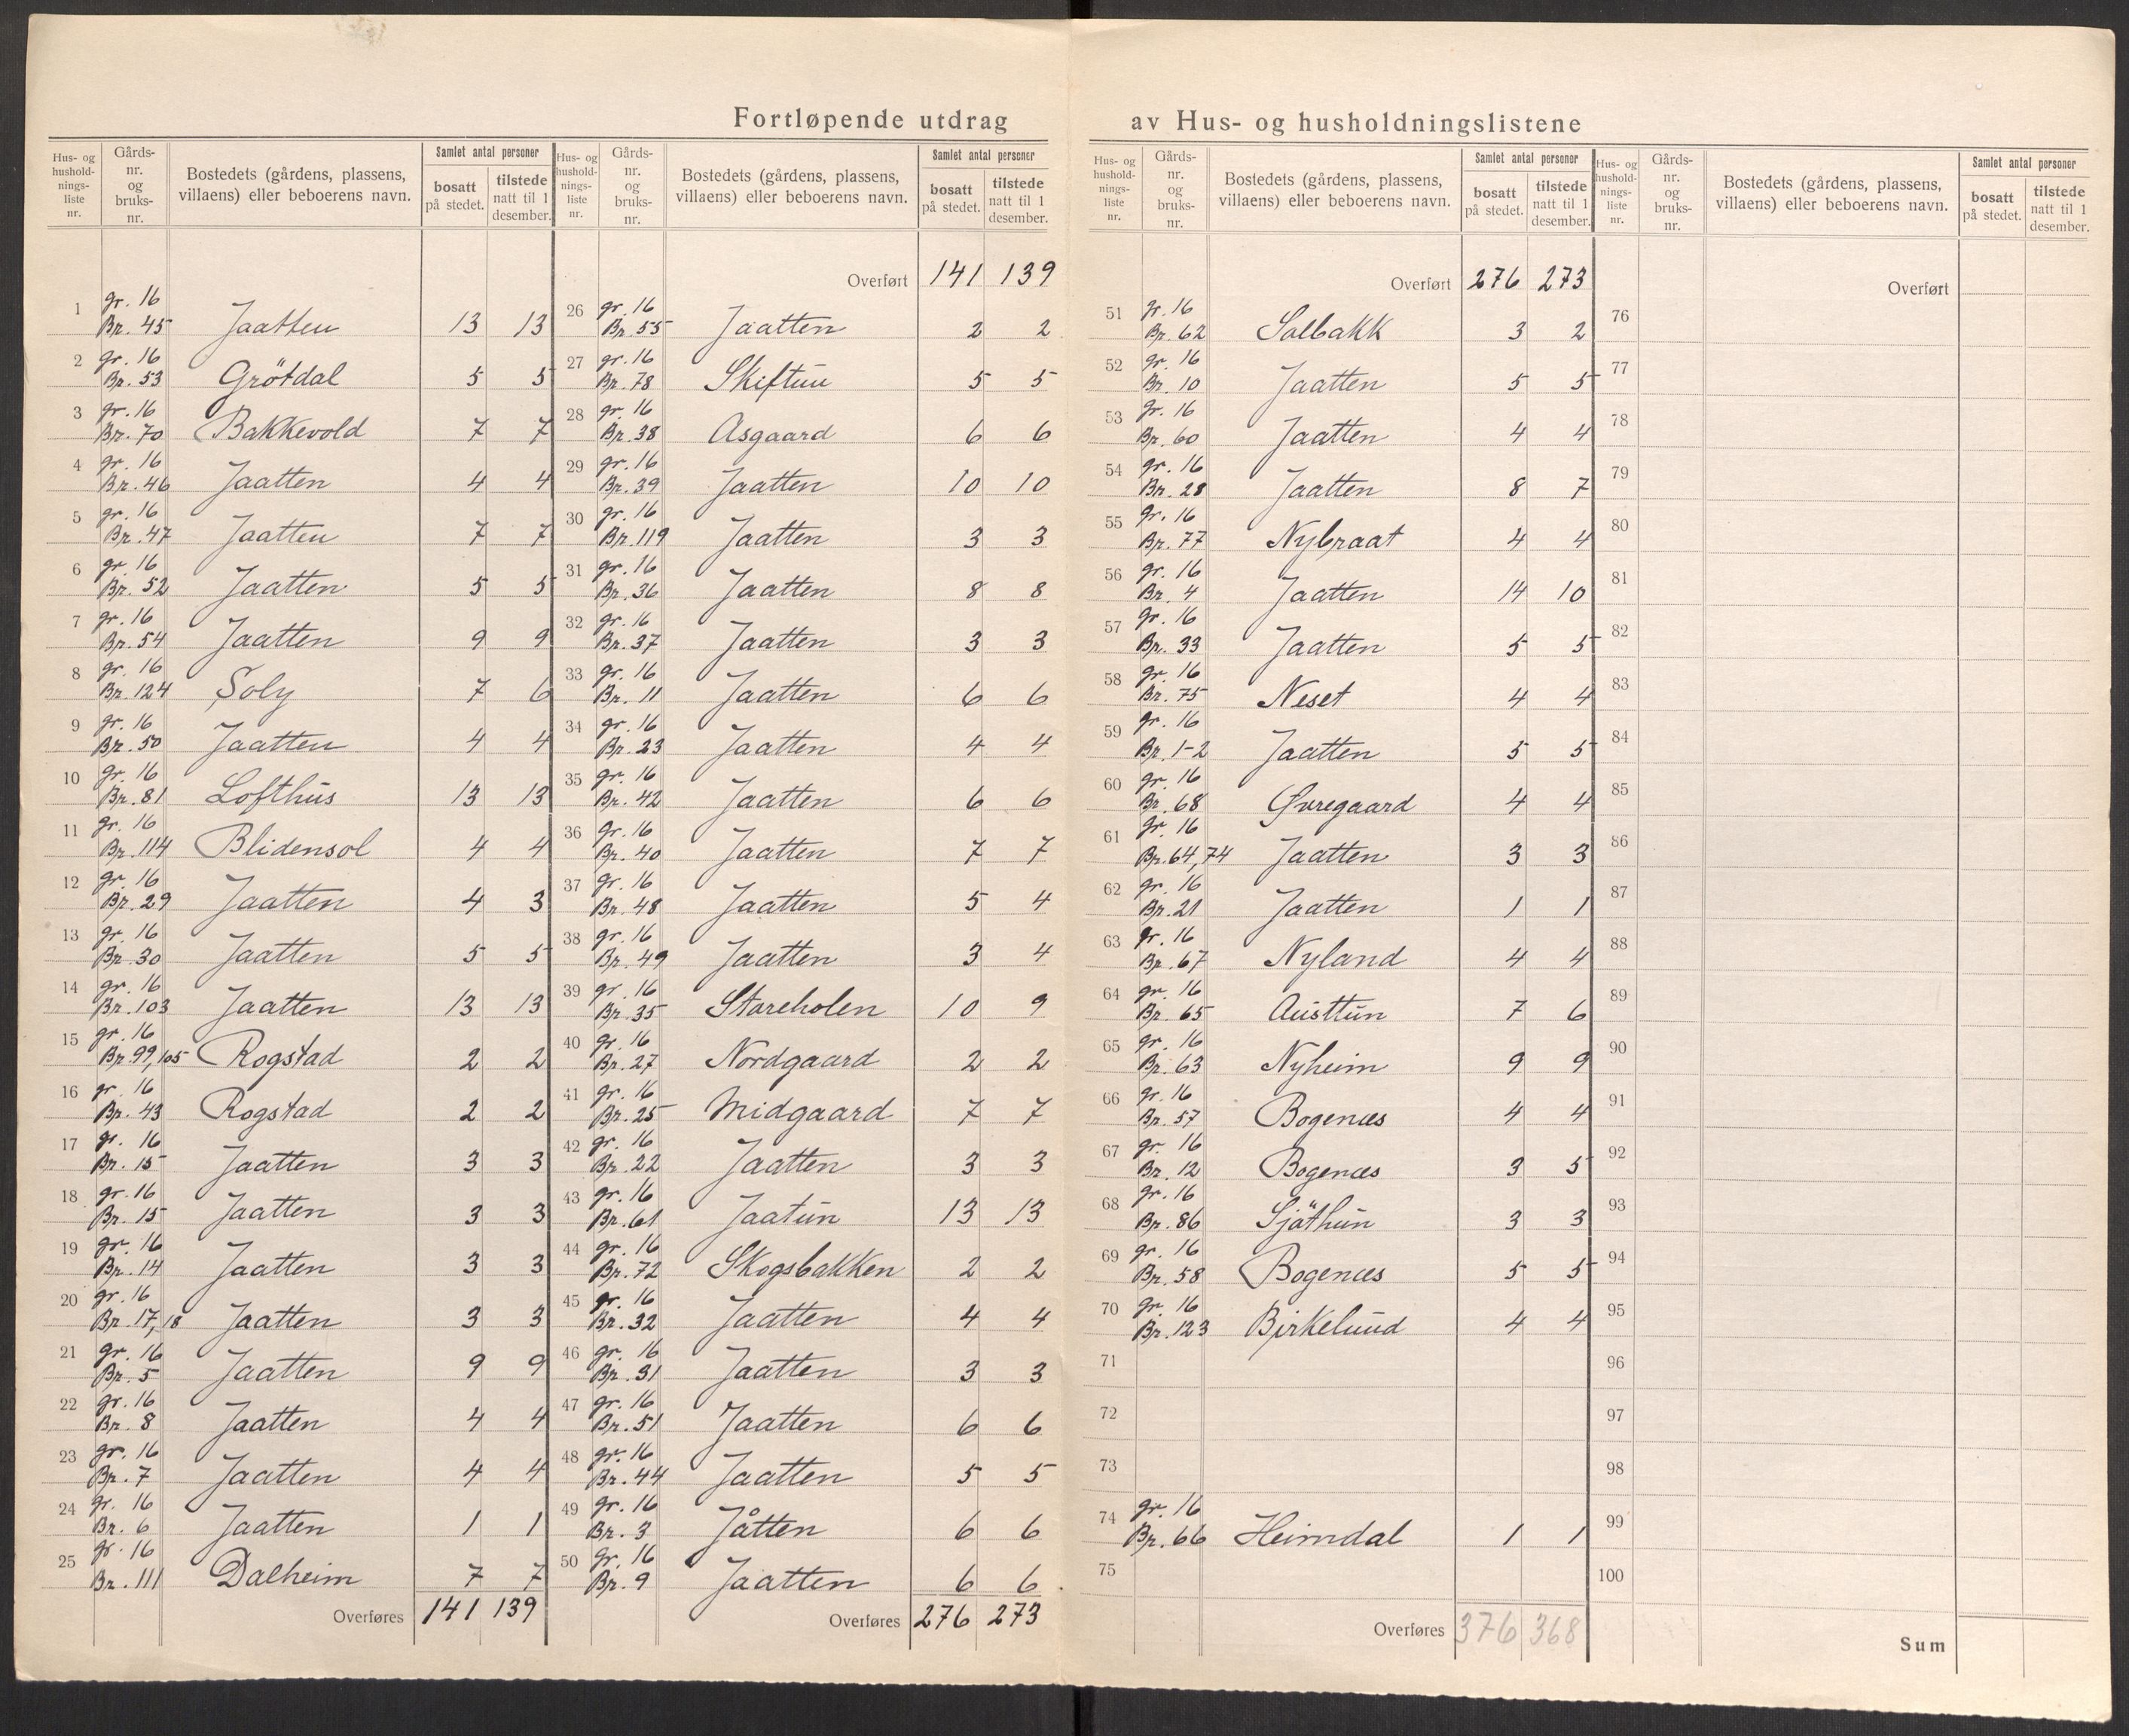 Fortløpende utdrag av Hus- og husholdningslistene
Hus- og husholdnings-liste nr. | Gårds-nr. og bruks-nr. | Bostedets (gårdens, plassens, villaens) eller beboerens navn. | Samlet antal personer | bosatt på stedet. | tilstede natt til 1 desember.
1 gr. 16 Br. 45 Jaatten 13 13
2 gr. 16 Br. 53 Grötdal 5 5
3 gr. 16 Br. 70 Bakkevold 7 7
4 gr. 16 Br. 46 Jaatten 4 4
5 gr. 16 Br. 47 Jaatten 7 7
6 gr. 16 Br. 52 Jaatten 5 5
7 gr. 16 Br. 54 Jaatten 9 9
8 gr. 16 Br. 124 Soly 7 6
9 gr. 16 Br. 50 Jaatten 4 4
10 gr. 16 Br. 81 Lofthus 13 13
11 gr. 16 Br. 114 Blidensol 4 4
12 gr. 16 Br. 29 Jaatten 4 3
13 gr. 16 Br. 30 Jaatten 5 5
14 gr. 16 Br. 103 Jaatten 13 13
15 gr. 16 Br. 99, 105 Rogstad 2 2
16 gr. 16 Br. 43 Rogstad 2 2
17 gr. 16 Br. 15 Jaatten 3 3
18 gr. 16 Br. 15 Jaatten 3 3
19 gr. 16 Br. 14 Jaatten 3 3
20 gr. 16 Br. 17, 18 Jaatten 3 3
21 gr. 16 Br. 5 Jaatten 9 9
22 gr. 16 Br. 8 Jaatten 4 4
23 gr. 16 Br. 7 Jaatten 4 4
24 gr. 16 Br. 6 Jaatten 1 1
25 gr. 16 Br. 111 Dalheim 7 7
Overføres 141 139
Hus- og husholdnings-liste nr. | Gårds-nr. og bruks-nr. | Bostedets (gårdens, plassens, villaens) eller beboerens navn. | Samlet antal personer | bosatt på stedet. | tilstede natt til 1 desember.
Overført 141 139
26 gr. 16 Br. 55 Jaatten 2 2
27 gr. 16 Br. 78 Skiftun 5 5
28 gr. 16 Br. 38 Asgaard 6 6
29 gr. 16 Br. 39 Jaatten 10 10
30 gr. 16 Br. 119 Jaatten 3 3
31 gr. 16 Br. 36 Jaatten 8 8
32 gr. 16 Br. 37 Jaatten 3 3
33 gr. 16 Br. 11 Jaatten 6 6
34 gr. 16 Br. 23 Jaatten 4 4
35 gr. 16 Br. 42 Jaatten 6 6
36 gr. 16 Br. 40 Jaatten 7 7
37 gr. 16 Br. 48 Jaatten 5 4
38 gr. 16 Br. 49 Jaatten 3 4
39 gr. 16 Br. 35 Storeholen 10 9
40 gr. 16 Br. 27 Nordgaard 2 2
41 gr. 16 Br. 25 Midgaard 7 7
42 gr. 16 Br. 22 Jaatten 3 3
43 gr. 16 Br. 61 Jaatun 13 13
44 gr. 16 Br. 72 Skogsbakken 2 2
45 gr. 16 Br. 32 Jaatten 4 4
46 gr. 16 Br. 31 Jaatten 3 3
47 gr. 16 Br. 51 Jaatten 6 6
48 gr. 16 Br. 44 Jaatten 5 5
49 gr. 16 Br. 3 Jåtten 6 6
50 gr. 16 Br. 9 Jaatten 6 6
Overføres 276 273
Hus- og husholdnings-liste nr. | Gårds-nr. og bruks-nr. | Bostedets (gårdens, plassens, villaens) eller beboerens navn. | Samlet antal personer | bosatt på stedet. | tilstede natt til 1 desember.
Overført 276 273
51 gr. 16 Br. 62 Solbakk 3 2
52 gr. 16 Br. 10 Jaatten 5 5
53 gr. 16 Br. 60 Jaatten 4 4
54 gr. 16 Br. 28 Jaatten 8 7
55 gr. 16 Br. 77 Nybraat 4 4
56 gr. 16 Br. 4 Jaatten 14 10
57 gr. 16 Br. 33 Jaatten 5 5
58 gr. 16 Br. 75 Neset 4 4
59 gr. 16 Br. 1-2 Jaatten 5 5
60 gr. 16 Br. 68 Øvregaard 4 4
61 gr. 16 Br. 64, 74 Jaatten 3 3
62 gr. 16 Br. 21 Jaatten 1 1
63 gr. 16 Br. 67 Nyland 4 4
64 gr. 16 Br. 65 Austtun 7 6
65 gr. 16 Br. 63 Nyheim 9 9
66 gr. 16 Br. 57 Bogenæs 4 4
67 gr. 16 Br. 12 Bogenæs 3 5
68 gr. 16 Br. 86 Sjöthun 3 3
69 gr. 16 Br. 58 Bogenæs 5 5
70 gr. 16 Br. 123 Birkelund 4 4
71
72
73
74 gr. 16 Br. 66 Heimdal 1 1
75
Overføres 376 368
Hus- og husholdnings-liste nr. | Gårds-nr. og bruks-nr. | Bostedets (gårdens, plassens, villaens) eller beboerens navn. | Samlet antal personer | bosatt på stedet. | tilstede natt til 1 desember.
Overført
76
77
78
79
80
81
82
83
84
85
86
87
88
89
90
91
92
93
94
95
96
97
98
99
100
Sum